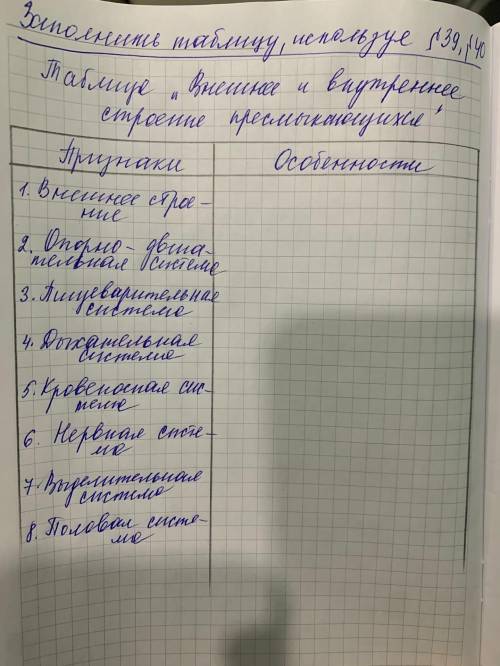 Заполнить таблицу, используя §39, §40
Таблица „Внешнее и внутреннее
строение пресмыкающихся"
Признаки
Особенности
1. Внешнее строе-
ние
2. Опорно-двига-
тельная система
3. Пищеварительная
система
4. Дыхательная
система
5. Кровеносная сис-
тема
6. Нервная систе-
ма
7. Выделительная
система
8. Половая систе-
ма